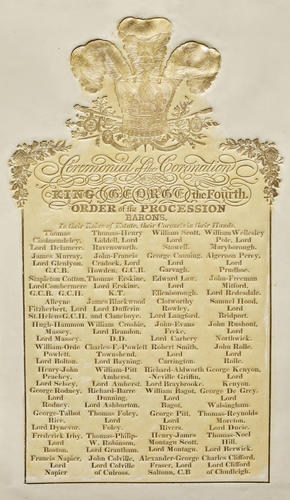 Ceremonial of the Coronation
of
KING GEORGE the Fourth.
ORDER of the PROCESSION
BARONS,
In their Robes of Estate, their Coronets in their Hands.
Thomas Thomas-Henry William Scott, William Wellesley
Cholmondeley, Liddell, Lord Lord Pole, Lord
Lord Delamere. Ravensworth. Stowell. Maryborough.
James Murray, John-Francis George Cunning, Algernon Percy,
Lord Glenlyon. Cradock, Lord Lord Lord
G.C.B. Howden, G.C.B. Garvagh. Prudhoe.
Stapleton Cotton, Thomas Erskine, Edward Law, John-Freeman
Lord Combermere Lord Erskine, Lord Mitford,
G.C.B. G.C.H. K.T. Ellenborough. Lord Redesdale.
Alleyne James Blackwood Clotworthy Samuel Hood,
Fitzherbert, Lord Lord Dufferin Rowley, Lord
St. Helens G.C.H. and Claneboye. Lord Langford. Bridport.
Hugh-Hammon William Crosbie, John-Evans John Rushout,
Massey, Lord Brandon, Freke, Lord
Lord Massey. D.D. Lord Carbery Northwick.
William-Powlett Charles-F.-Powlett Robert Smith, John Rolle,
Powlett, Townshend, Lord Lord
Lord Bolton. Lord Bayning. Carrington. Rolle.
Henry-John William-Pitt Richard-Aldworth George Kenyon,
Peachey, Amherst, -Neville Griffin, Lord
Lord Selsey, Lord Amherst. Lord Braybrooke. Kenyon.
George Rodney, Richard-Barre William Bagot, George De Grey,
Lord Dunning, Lord Lord
Rodney. Lord Ashburton. Bagot, Walsingham.
George-Talbot Thomas Foley, George Pitt, Thomas-Reynolds
Rice, Lord Lord Moreton,
Lord Dynevor. Foley. Rivers. Lord Ducie.
Frederick Irby, Thomas-Philip- Henry-James Thomas-Noel
Lord W. Robinson, Montagu Scott, Hill,
Boston. Lord Grantham. Lord Montagu. Lord Berwick.
Francis Napier, John Colville, Alexander-George Charles Clifford,
Lord Lord Colville Fraser, Lord Lord Clifford
Napier of Culross. Saltoun, C.B of Chudleigh.